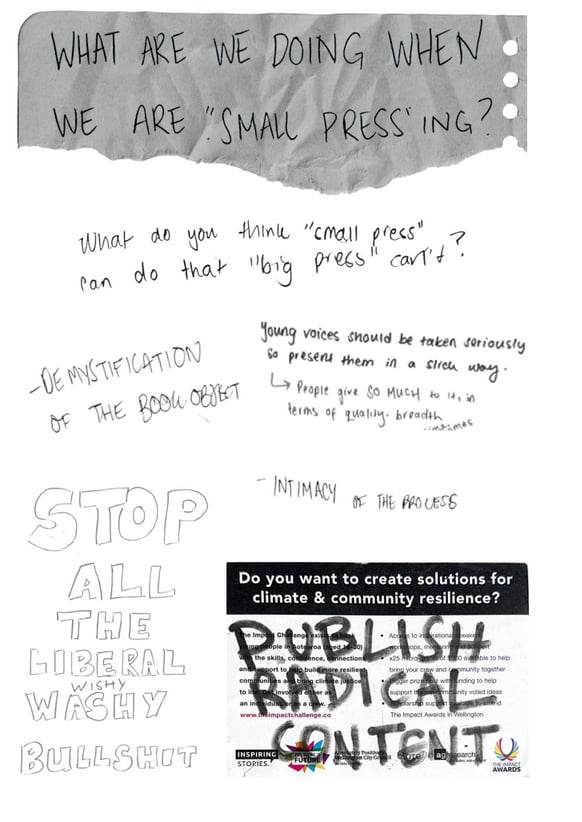 WHAT ARE WE DOING WHEN
WE ARE "SMALL PRESS'ING?
What do you think "small press"
can do that "big press" can't?
Young voices should be taken seriously
so present them in a slick way.
↳ People give SO MUCH to it, in
terms of quality. breadth
-DEMYSTIFICATION
OF THE BOOK OBJECT
- INTIMACY OF THE PROCESS
STOP
ALL
THE
LIBERAL
WISHY
WASHY
BULLSHIT
Do you want to create solutions for
climate & community resilience?
PUBLISH
RADICAL
CONTENT
The Impact Challenge exists to
young people in Aotearoa (aged 16-30)
with the skills, confidence, connections
and support to help build more resilient
communities and bring climate justice
to life. Get involved either as
an individual or as a crew.
www.theimpactchallenge.co
• Access to inspirational speakers
workshops, and support
• x25 of available to help
bring your crew and community together
• prize with funding to help
support community voted ideas
• Scholarship support to attend
The Impact Awards in Wellington
INSPIRING
STORIES.
FUTURE
Absolutely Positively
Wellington City Council
agresearch
THE IMPACT
AWARDS